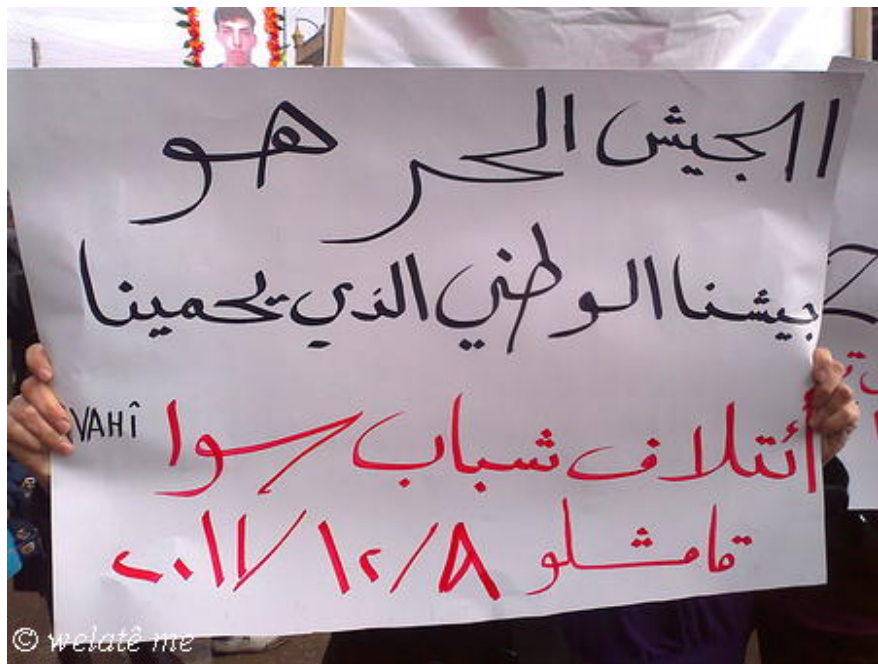 الجيش الحر هو
جيشنا الوطني الذي يحمينا
أئتلاف شباب سوا
VAHÎ
قامشلو ٨/١٢/٢٠١١
© welatê me